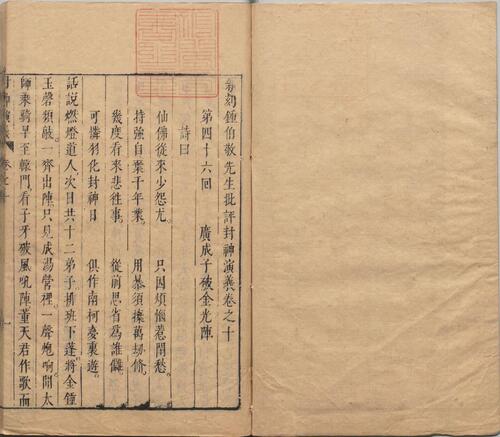 新刻鍾伯敬先生批評封神演義卷之十
第四十六回　廣成子破金光陣
詩曰
仙佛從來少怨尤。　只因煩惱惹閒愁。
恃強自棄千年業。　用暴須拚萬劫修。
幾度看來悲徃事。　從前思省為誰讎。
可憐羽化封神日　俱作南柯夢裏遊。
話說燃燈道人次日共十二弟子排班下蓬將金鐘
玉磬頻敲一齊出陣只見成湯營裡一聲炮响聞太
師乘騎早至轅門看子牙破風吼陣董天君作歌而
封神演義　卷之十　一